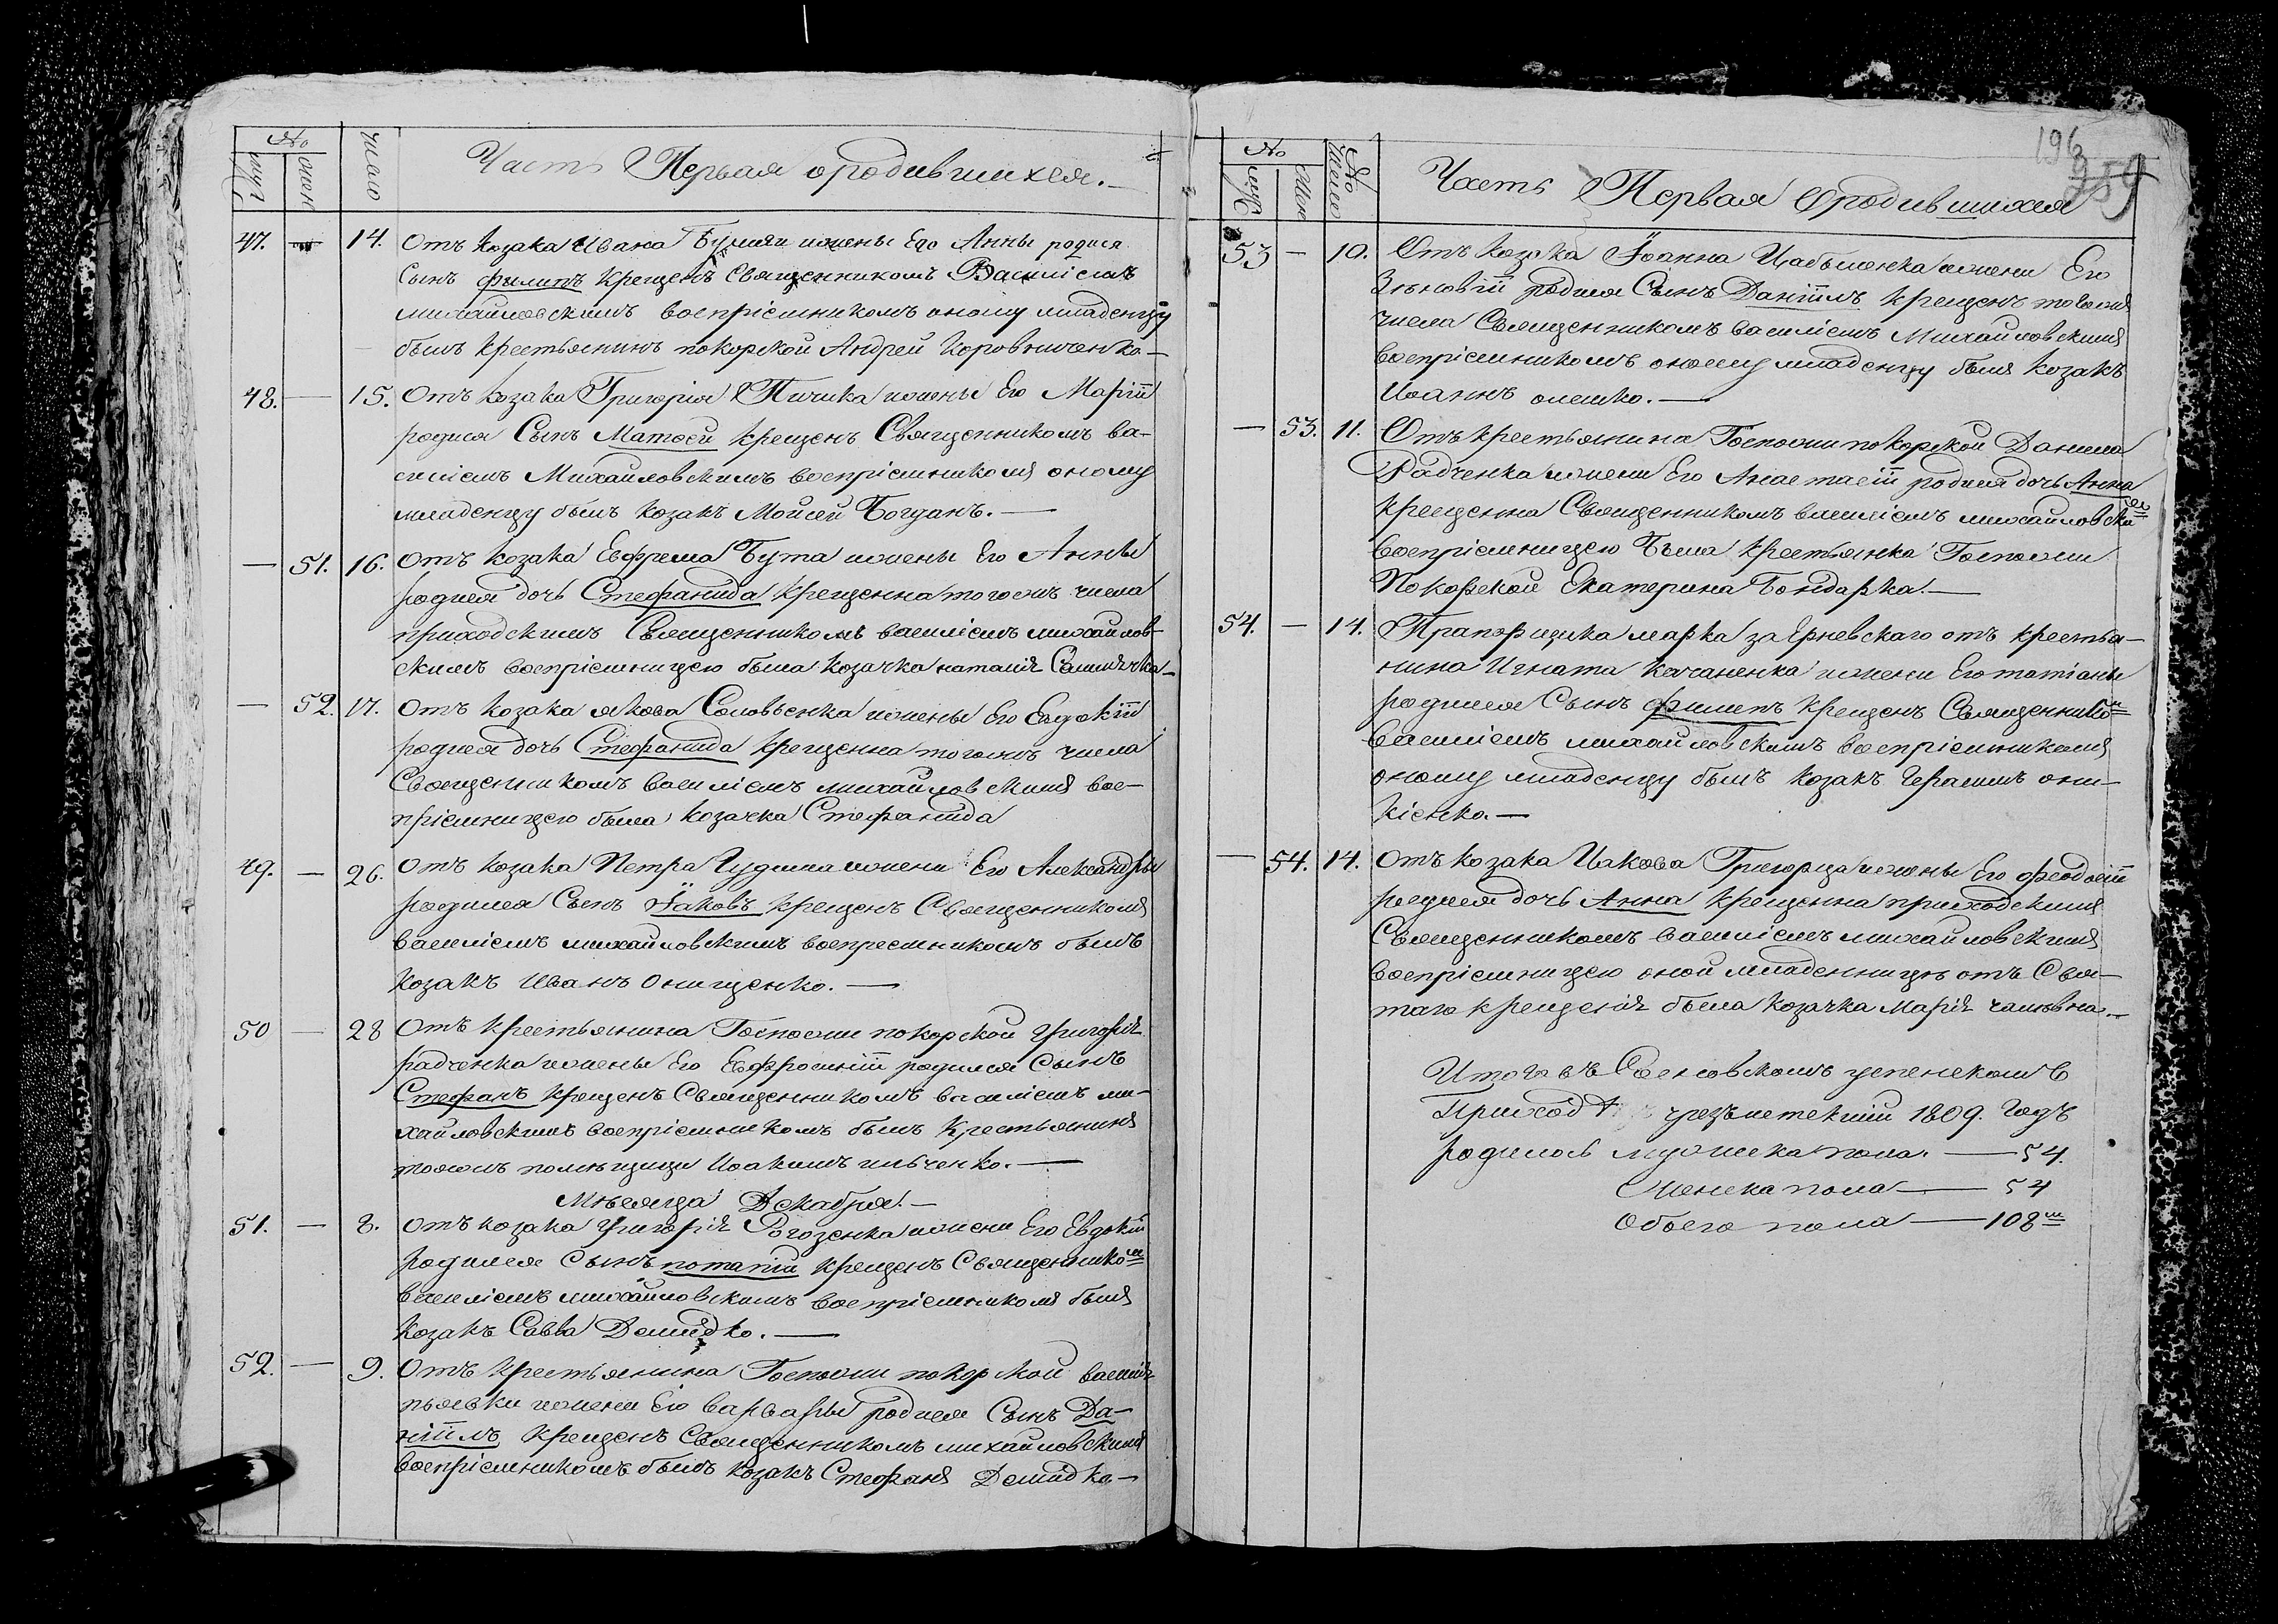 №
муж
женс
число
Часть Первая ородившихся.
47. — 14. Отъ козака Ивана Бутыли ижены Его Анны родися
Сынъ филипъ крещенъ Священникомъ Василіемъ
михайловскимъ воспріемникомъ оному младенцу
былъ крестьянинъ покорской Андрей Коровниченко.—
48. — 15. Отъ козака Григорія Пичика ижены Его Маріи
родися Сынъ Матфей крещенъ Священникомъ ва-
силіемъ Михайловскимъ воспріемникомъ оному
младенцу былъ козакъ Мойсей Богданъ.—
— 51. 16. Отъ козака Ефрема Бута ижены Его Анны
родися дочь Стефанида крещенна тогожъ числа
приходскимъ Священникомъ василіемъ михайлов-
скимъ воспріемницею была козачка наталія
— 52. 17. Отъ козака якова Соловьенка ижены Его Евдокіи
родися дочь Стефанида крещенна тогожъ числа
Священникомъ василіемъ михайловскимъ вос-
пріемницею была козачка Стефанида
49. — 26. Отъ козака Петра Чудина ижени Его Александры
родился Сынъ Іаковъ крещенъ Священникомъ
василіемъ михайловскимъ воспреемникомъ былъ
козакъ Иванъ Онищенко.—
50 — 28 Отъ крестьянина Госпожи покорской григорія
радченка ижены Его Евфросиніи родился Сынъ
Стефанъ крещенъ Священникомъ василіемъ ми-
хайловскимъ воспріемникомъ былъ крестьянинъ
тояжъ помѣщици Иоакимъ ильченко.—
Мѣсяца Декабря.—
51. — 8. Отъ козака григорія Рогозенка ижени Его Евдокіи
родился Сынъ потапій крещенъ Священникомъ
василіемъ михайловскимъ воспріемникомъ былъ
козакъ Савва Демидко.—
52. — 9. Отъ крестьянина Госпожи покорской василія
пьявки ижени Его варвары родися Сынъ Да-
ніилъ крещенъ Священникомъ михайловскимъ
воспріемникомъ былъ козакъ Стефанъ Демидко—
196
259
№
муж
жен
Число
Часть Первая Ородившихся
53 — 10. Отъ козака Іоанна Цабыленка ижени Его
Зѣновіи родися Сынъ Даніилъ крещенъ тогожъ
числа Священникомъ василіемъ Михайловскимъ
воспріемникомъ оному младенцу былъ козакъ
Иоаннъ олешко.—
— 53. 11. Отъ крестьянина Госпожи покорской Данила
Радченка ижени Его Анастасіи родися дочь Анна
крещенна Священникомъ василіемъ михайловским
воспріемницею была крестьянка Госпожи
Покорской Екатерина Бондарка.—
54. — 14. Прапорщика марка заернѣвскаго отъ крестья-
нина Игната Качаненка ижени Его татіаны
родился Сынъ филипъ крещенъ Священником
василіемъ михайловскимъ воспріемникомъ
оному младенцу былъ козакъ Герасимъ они-
кіенко.—
— 54. 14. Отъ козака Иякова Григорца ижены Его феодосіи
родися дочь Анна крещенна приходскимъ
Священникомъ василіемъ михайловскимъ
воспріемницею оной младенницѣ отъ Свя-
таго крещенія была козачка Марія
Итого въ успенскомъ
Приход чрезъ истекший 1809. Годъ
родилось мужеска пола.— 54.
Женска пола— 54
Обоего пола— 108